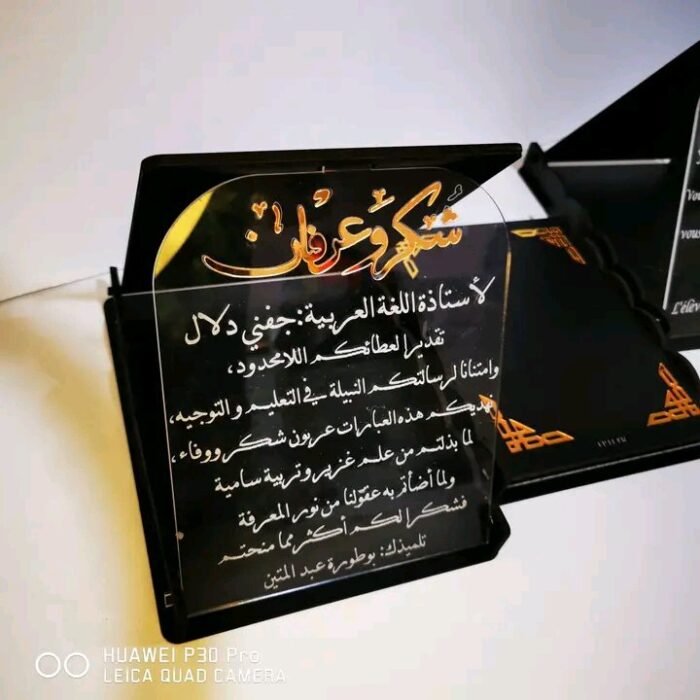 شكر وعرفان
لأستاذة اللغة العربية: جفني دلال
تقديرا لعطائكم اللامحدود،
وامتنانا لرسالتكم النبيلة في التعليم والتوجيه،
نهديكم هذه العبارات عربون شكر ووفاء،
لما بذلتم من علم غزير وتربية سامية
ولما أضأتم به عقولنا من نور المعرفة
فشكرا لكم أكثر مما منحتم
تلميذك: بوطورة عبد المتين
vous
L'élèv
HUAWEI P30 Pro
LEICA QUAD CAMERA